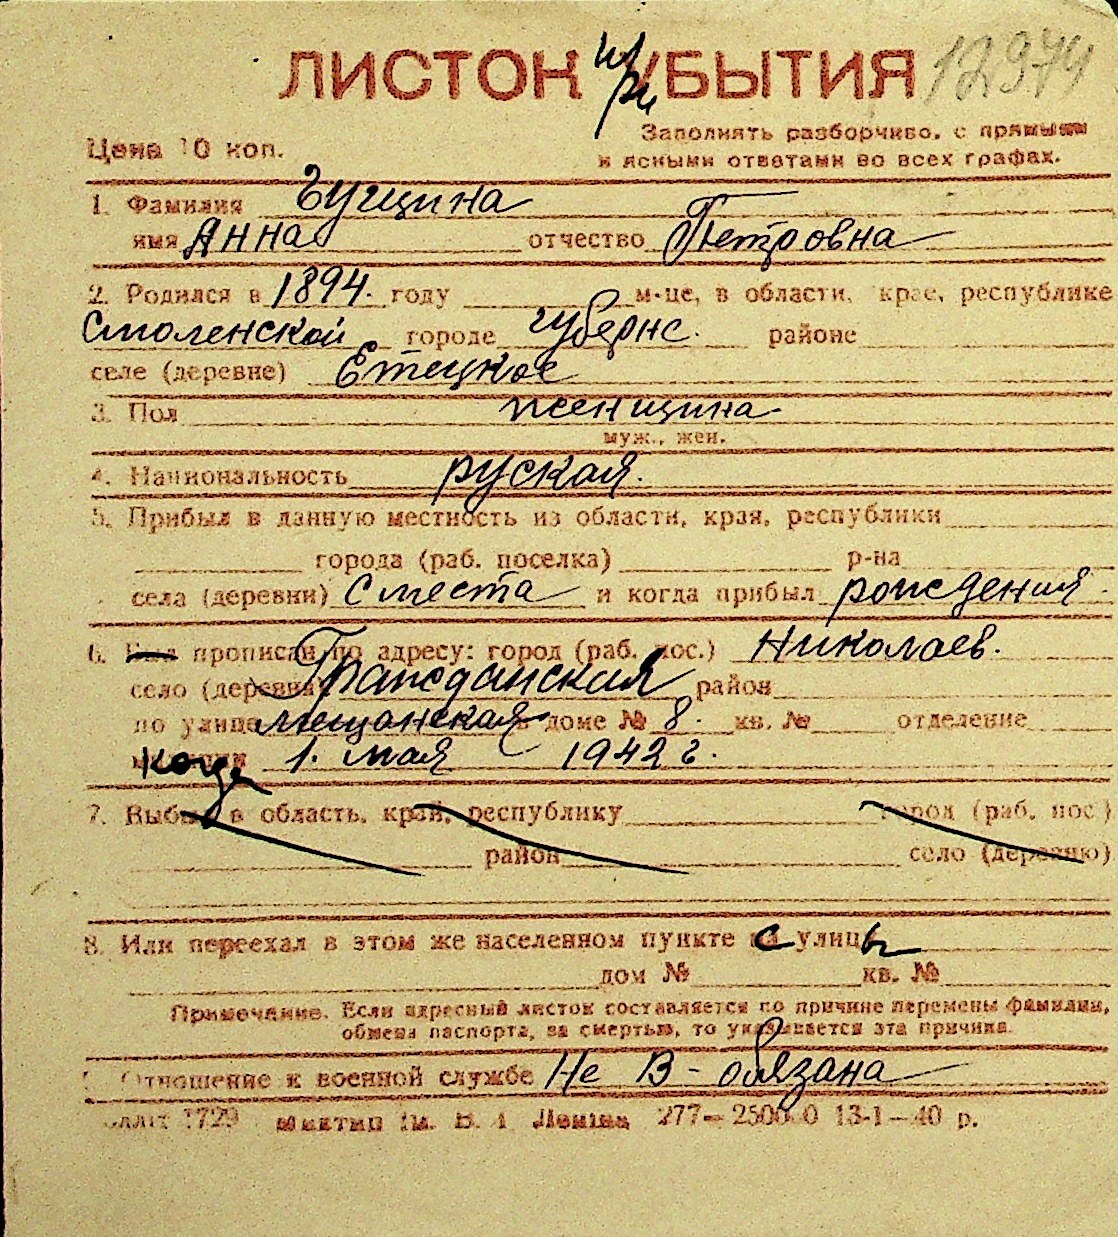 ЛИСТОК при УБЫТИЯ 12974
Цена 10 коп.
Заполнять разборчиво, с прямыми
и ясными ответами во всех графах.
1. Фамилия Гущина
имя Анна отчество Петровна
2. Родился в 1894. году м-це, в области, крае, республике
Смоленской городе губернс. районе
селе (деревне) Етецкое
3. Пол женщина
муж., жен.
4. Национальность руская.
5. Прибыл в данную местность из области, края, республики
города (раб. поселка) р-на
села (деревни) с места и когда прибыл рождения.
6. Был прописан по адресу: город (раб. пос.) Николаев.
село (деревня) Гражданския район
по улице мещанская в доме № 8. кв. № отделение
когда 1. мая 1942 г.
7. Выбыл в область, край, республику город (раб. пос.)
район село (деревню)
8. Или переехал в этом же населенном пункте с улицы
дом № кв. №
Примечание. Если адресный листок составляется по причине перемены фамилии,
обмена паспорта, за смертью, то указывается эта причина.
Отношение к военной службе Не в-обязана
1729 Ленина 277— 13-1—40 р.